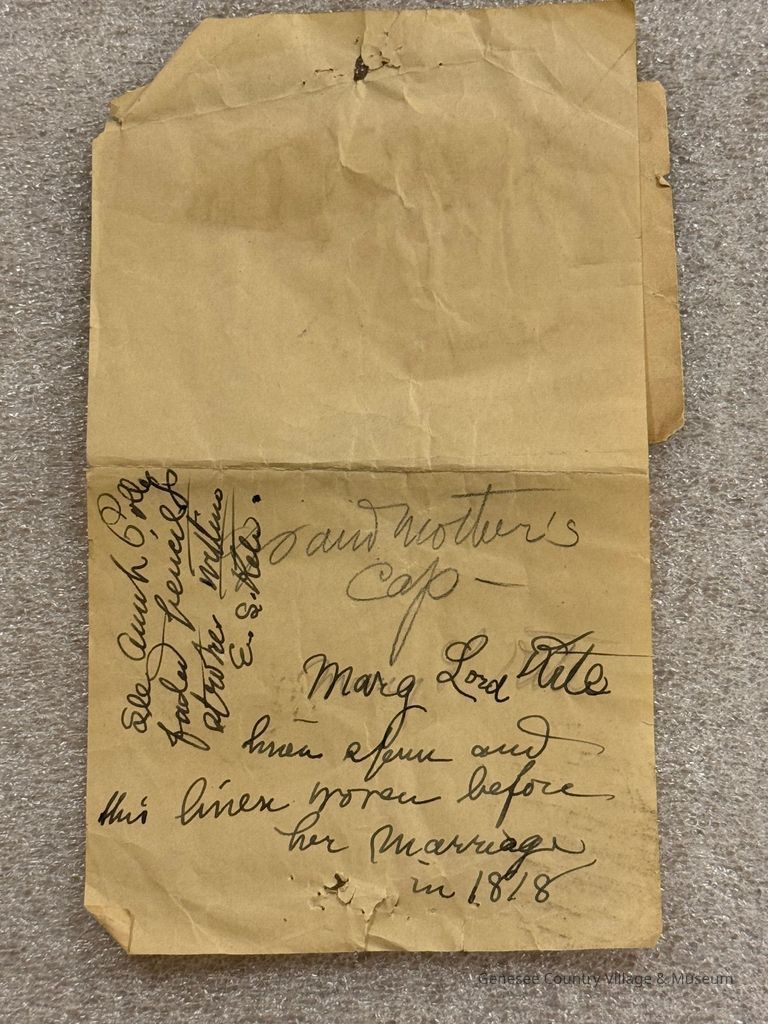 Grandmother's
Cap —
Mary Lord Kite
linen spun and
this linen woven before
her marriage
in 1818
See Aunt Polly
faded pencil
strokes written
E. S. Kite.
Genesee Country Village & Museum